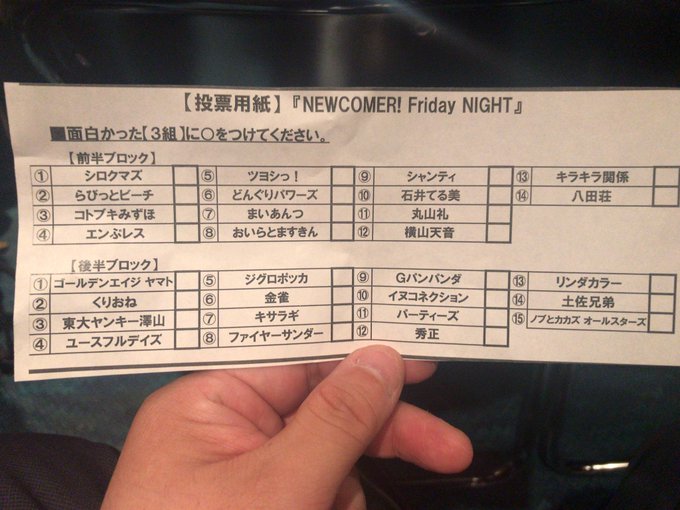 【投票用紙】『NEWCOMER! Friday NIGHT』
■面白かった【３組】に○をつけてください。
【前半ブロック】
① シロクマズ ⑤ ツヨシっ！ ⑨ シャンティ ⑬ キラキラ関係
② らびっとビーチ ⑥ どんぐりパワーズ ⑩ 石井てる美 ⑭ 八田荘
③ コトブキみずほ ⑦ まいあんつ ⑪ 丸山礼
④ エンぷレス ⑧ おいらとますきん ⑫ 横山天音
【後半ブロック】
① ゴールデンエイジ ヤマト ⑤ ジグロポッカ ⑨ Gパンパンダ ⑬ リンダカラー
② くりおね ⑥ 金雀 ⑩ イヌコネクション ⑭ 土佐兄弟
③ 東大ヤンキー澤山 ⑦ キサラギ ⑪ パーティーズ ⑮ ノブとカカズ オールスターズ
④ ユースフルデイズ ⑧ ファイヤーサンダー ⑫ 秀正